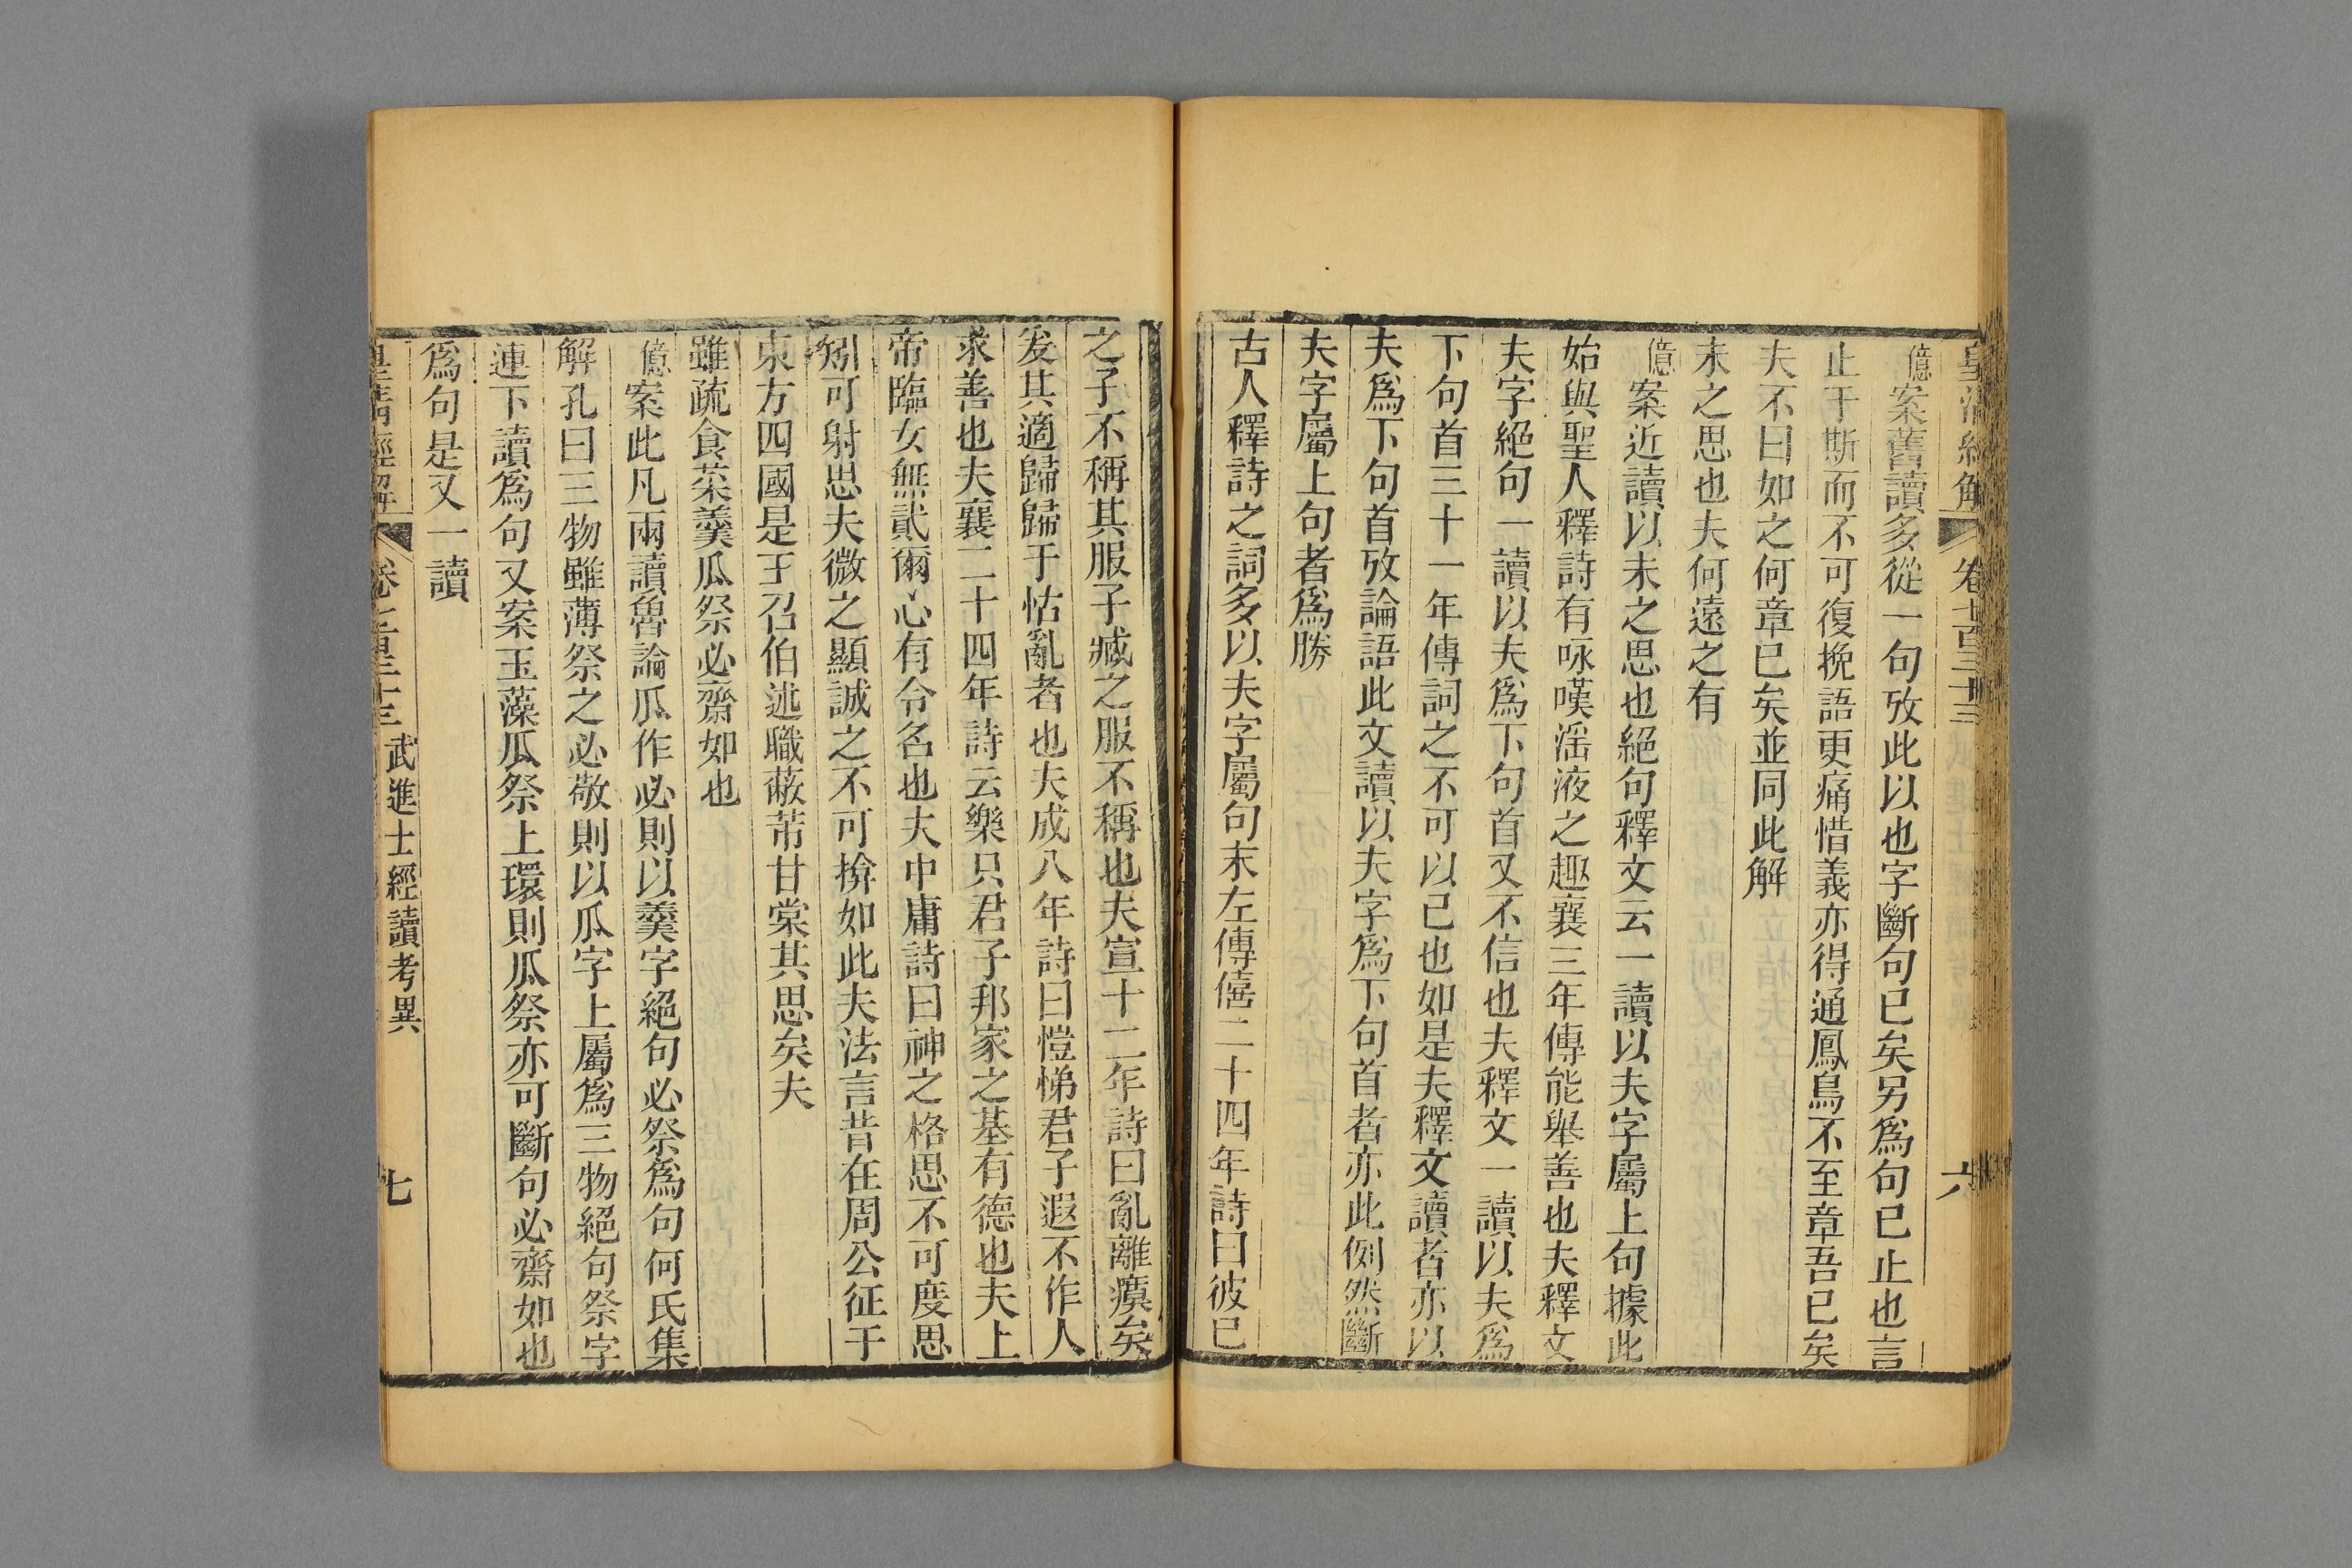 皇清經解 卷七百三十三 六
億案舊讀多從一句攷此以也字斷句已矣另爲句已止也言
止于斯而不可復挽語更痛惜義亦得通鳳鳥不至章吾已矣
夫不曰如之何章已矣並同此解
未之思也夫何遠之有
億案近讀以未之思也絕句釋文云一讀以夫字屬上句據此
始與聖人釋詩有咏嘆滛液之趣襄三年傳能舉善也夫釋文
夫字絕句一讀以夫爲下句首又不信也夫釋文一讀以夫爲
下句首三十一年傳詞之不可以已也如是夫釋文讀者亦以
夫爲下句首攷論語此文讀以夫字爲下句首者亦此例然斷
夫字屬上句者爲勝
古人釋詩之詞多以夫字屬句末左傳僖二十四年詩曰彼已
之子不稱其服子臧之服不稱也夫宣十二年詩曰亂離瘼矣
爰其適歸歸于怙亂者也夫成八年詩曰愷悌君子遐不作人
求善也夫襄二十四年詩云樂只君子邦家之基有德也夫上
帝臨女無貳爾心有令名也夫中庸詩曰神之格思不可度思
矧可射思夫微之顯誠之不可揜如此夫法言昔在周公征于
東方四國是王召伯述職蔽芾甘棠其思矣夫
雖疏食菜羹瓜祭必齋如也
億案此凡兩讀魯論瓜作必則以羹字絕句必祭爲句何氏集
解孔曰三物雖薄祭之必敬則以瓜字上屬爲三物絕句祭字
連下讀爲句又案玉藻瓜祭上環則瓜祭亦可斷句必齋如也
爲句是又一讀
皇清經解 卷七百三十三 武進士經讀考異 七